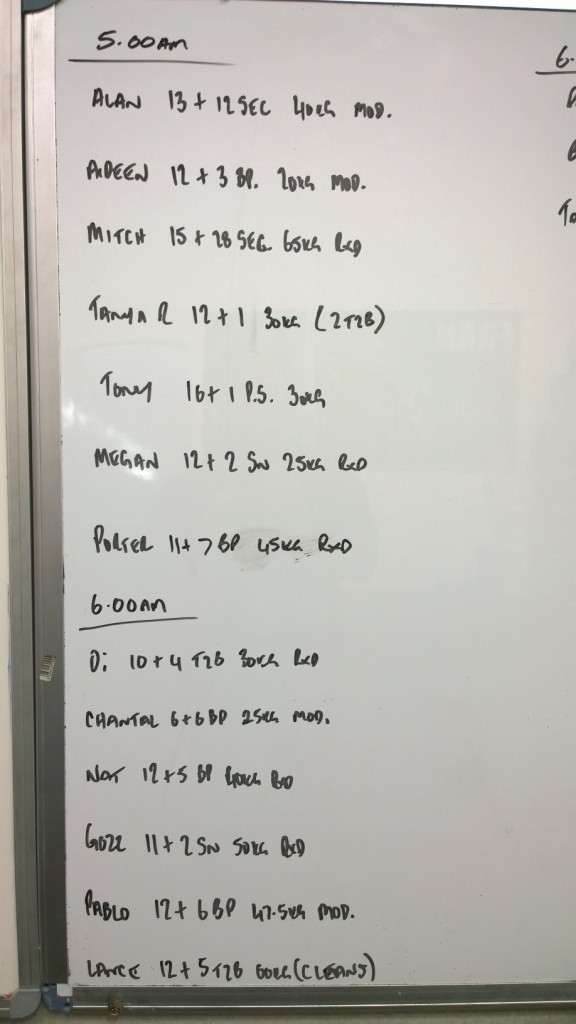 5.00AM
ALAN 13 + 12 SEC 40KG MOD.
12 + 3 BP. 20KG MOD.
MITCH 15 + 28 SEC 65KG RXD
TANYA R 12 + 1 30KG (2T2B)
TONY 16 + 1 P.S. 30KG
MEGAN 12 + 2 SN 25KG RXD
PORTER 11 + 7 BP 45KG RXD
6.00AM
Di 10 + 4 T2B 30KG RXD
CHANTAL 6 + 6 BP 25KG MOD.
12 + 5 BP 40KG RXD
GOZZ 11 + 2 SN 50KG RXD
PABLO 12 + 6 BP 47.5KG MOD.
LANCE 12 + 5 T2B 60KG (CLEANS)
6.